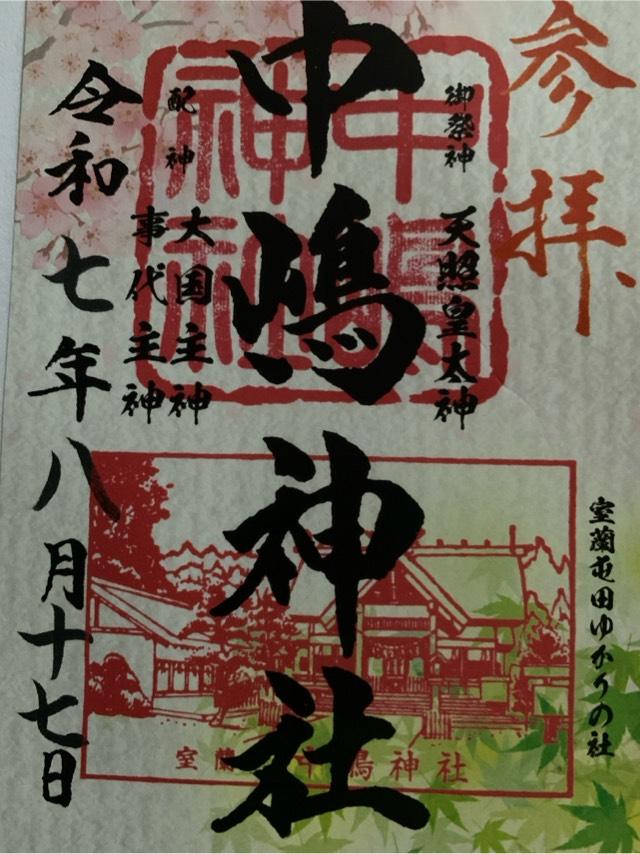 参拝
御祭神
天照皇太神
室蘭屯田ゆかりの社
中嶋神社
配神
大国主神
事代主神
令和七年八月十七日
中嶋神社
室蘭中嶋神社